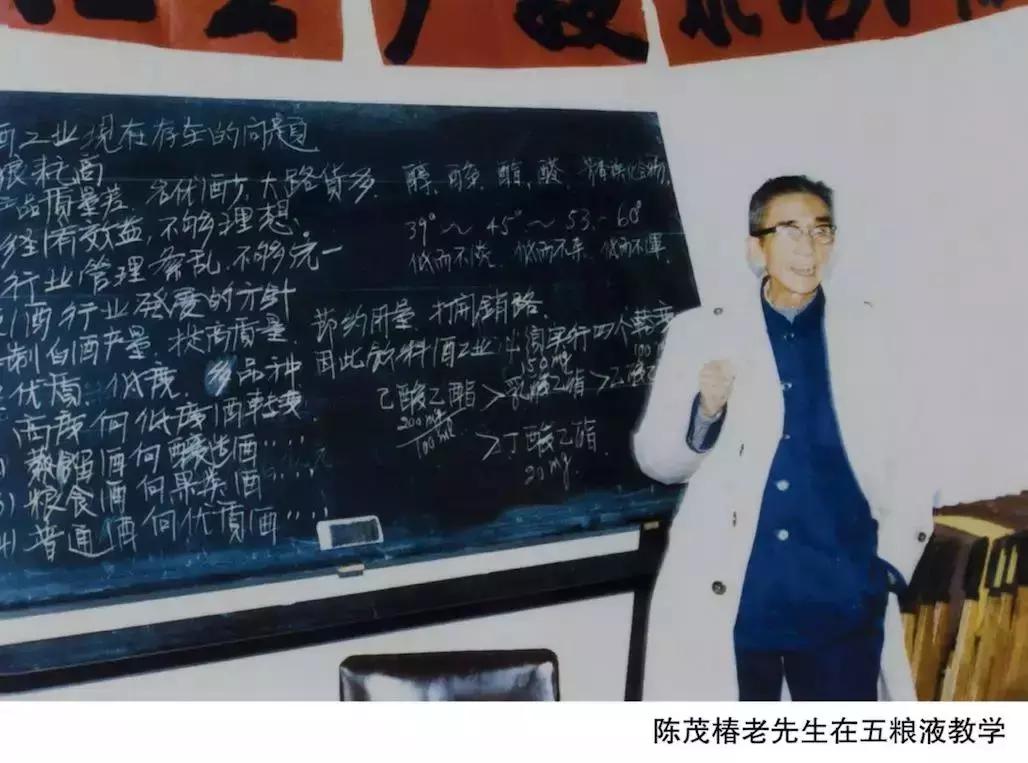 酒工业现在存在的问题
粮耗高
产品质量差 名优酒少,大路货多
经济有效益,不够理想.
行业管理紊乱.不够统一
酒行业发展的方针
制白酒产量.提高质量.
优质.低度.多品种
高度向低度酒转变.
蒸馏酒向酿造酒〃〃
3)粮食酒向果类酒〃〃
4)普通酒向优质酒〃〃
醇、醛、酯、酸、芳香族化合物.
39°~45°~53-60°
低而不淡 低而不杂 低而不浑.
节约用量.打开销路.
因此饮料酒工业 实行四个转变
己酸乙酯>乳酸乙酯>乙酸乙
200mg/100ml
150mg
100m
>丁酸乙酯.
20mg
陈茂椿老先生在五粮液教学